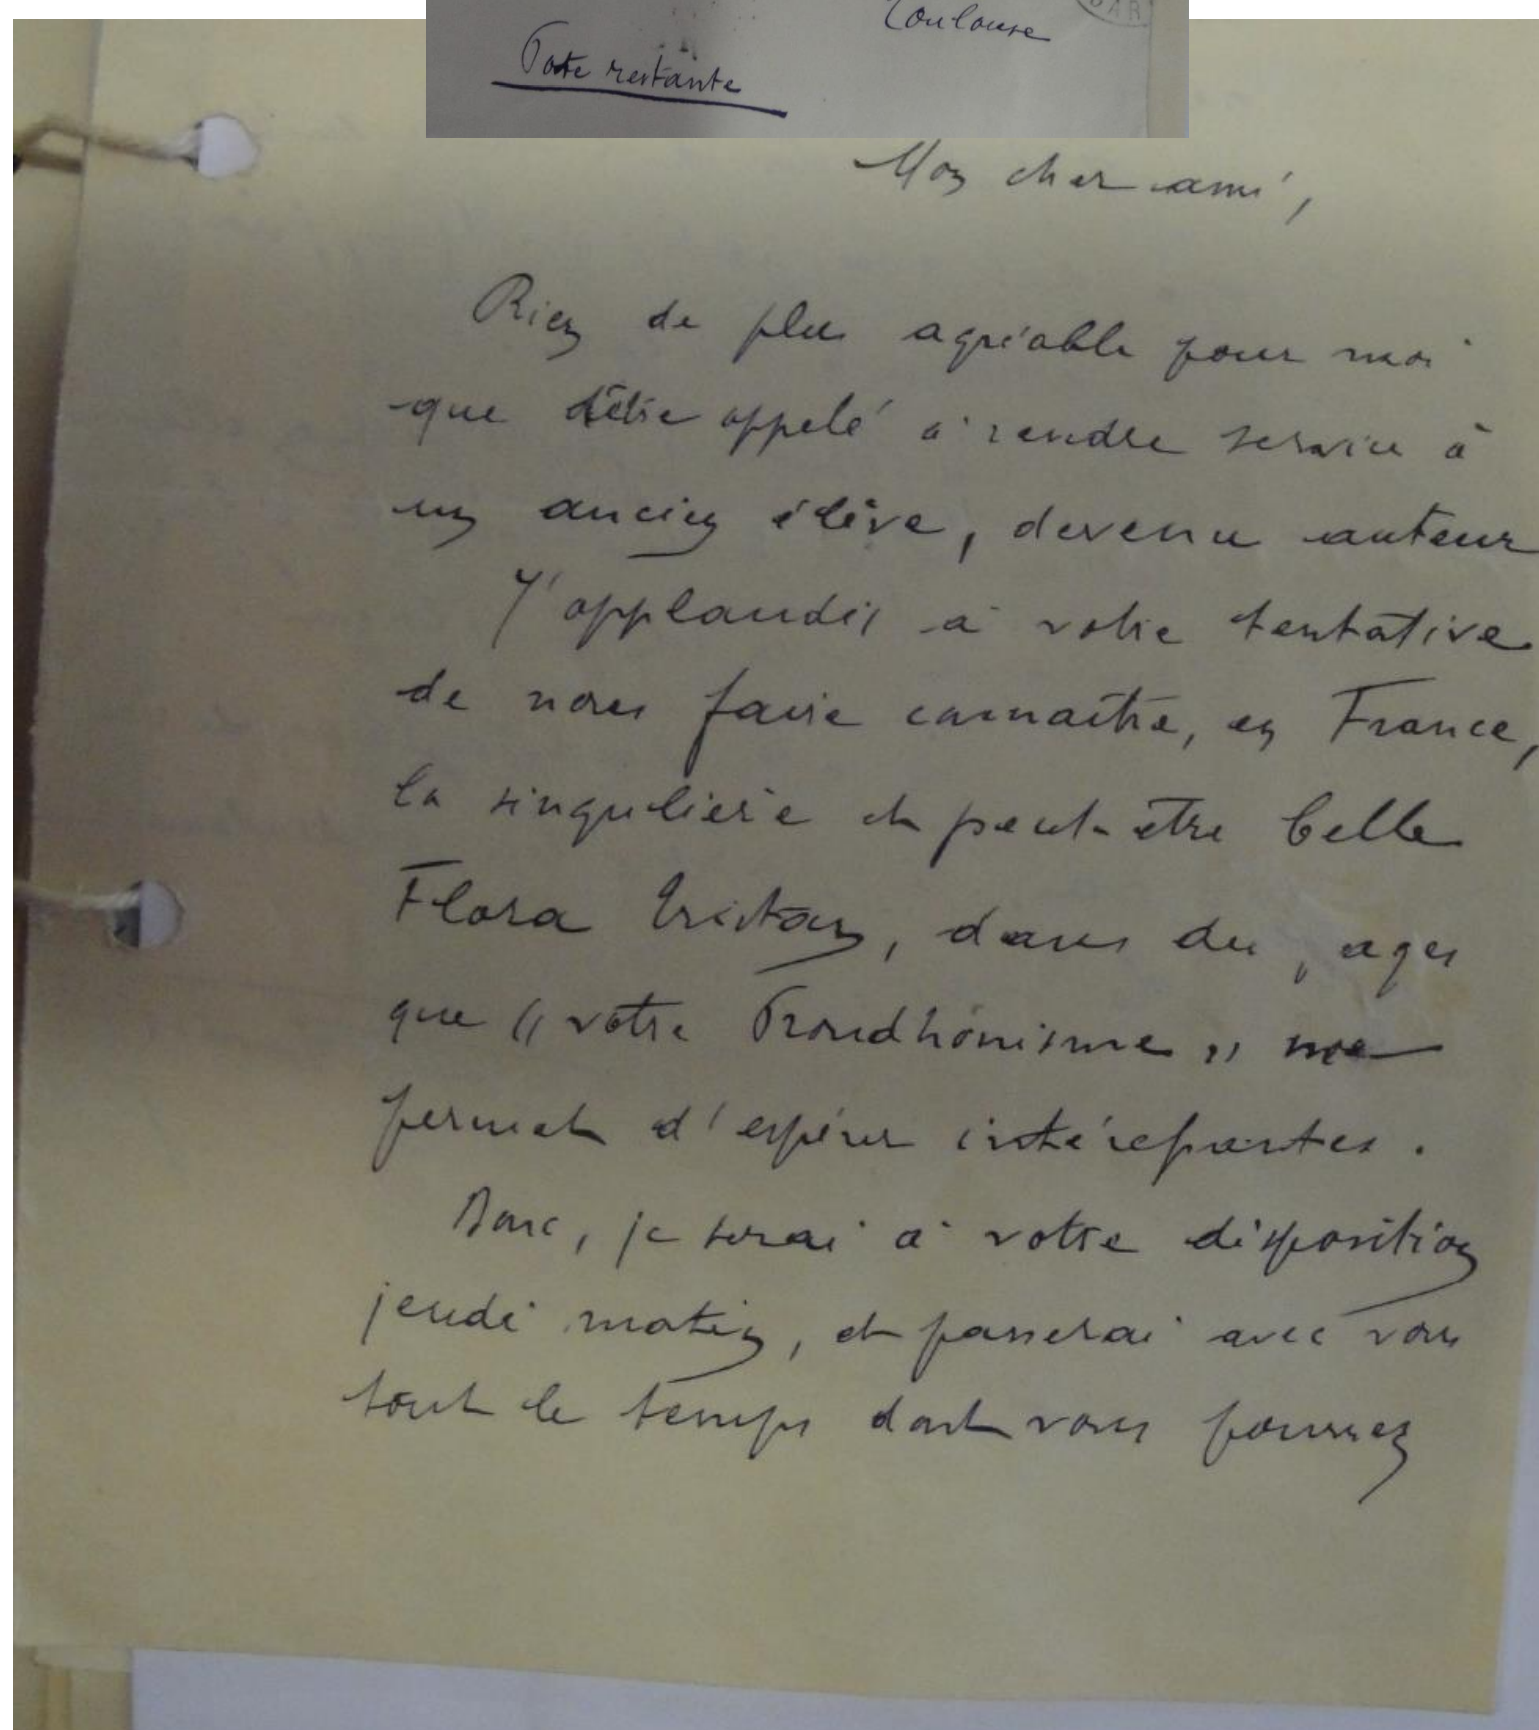 Toulouse
BAR
Poste restante
Mon cher ami,
Rien de plus agréable pour moi
que d'être appelé à rendre service à
un ancien élève, devenu auteur
J'applaudis à votre tentative
de nous faire connaître, en France,
la singulière et peut-être belle
Flora Tristan, dans des pages
que " votre Proudhonisme " me
permet d'espérer
Donc, je serai à votre disposition
jeudi matin, et passerai avec vous
tout le temps dont vous pourrez